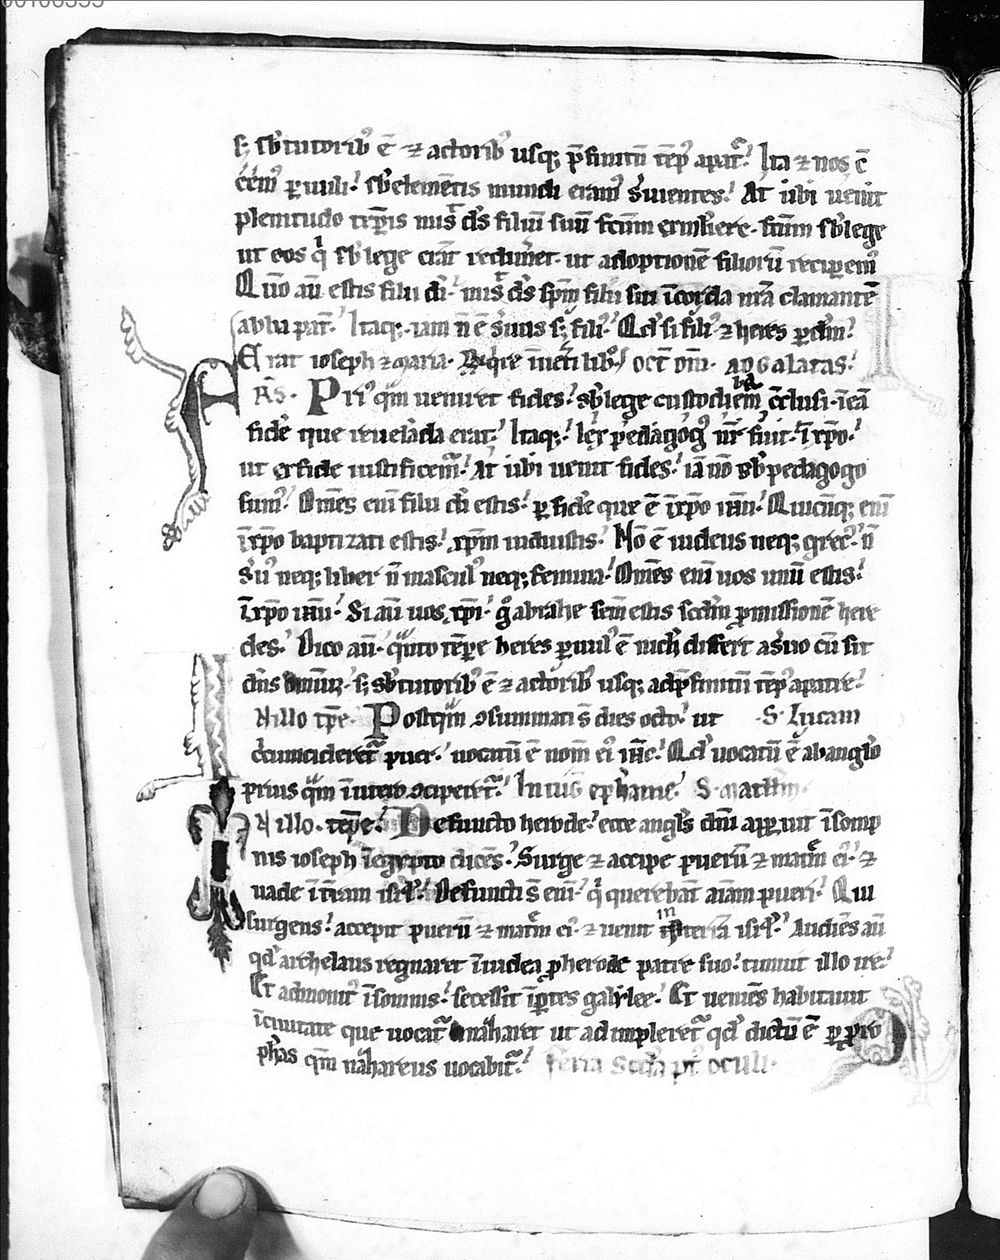 s; sb tutoribꝰ ē ⁊ actoribꝰ usq; p̄finitū tēpꝰ a patre. Ita ⁊ nos c̄
eēmꝰ paruuli. sb elementis mundi eramꝰ s̄uientes. At ubi uenit
plenitudo temp̄is misit ds̄ filiū suū fc̄m ex muliere. fc̄m sb lege
ut eos q' sb lege erāt redim̄et. ut adoptionē filiorū reciperemꝰ
Qm̄ aū estis filii di. misit ds̄ spm̄ filii sui ī corda nr̄a clamantē
abba pat̄. Itaq; iam n̄ ē s̄uus s; filiꝰ. Qd si filiꝰ ⁊ heres p dm̄.
Erat ioseph ⁊ maria. oct̄ dn̄i. AD GALATAS.
Priꝰq̄m ueniret fides. sb lege custodiebam̄ cc̄lusi. ī eā
fidē que reuelāda erat. Itaq; lex pedagogꝰ nr̄ fuit. ī xp̄o.
ut ex fide iustificem̄. At ubi uenit fides. iā nō sb pedagogo
sumꝰ. Om̄es eni filii di estis. p fidē que ē ī xp̄o ih̄u. Quicūq; eni
ī xp̄o baptizati estis. xp̄m induistis. Nō ē iudeus neq; grecꝰ. n̄
s̄uꝰ neq; liber n̄ masculꝰ neq; femina. Om̄es eni uos unū estis.
ī xp̄o ih̄u. Si aū uos xp̄i. g° abrahe semē estis scdm̄ pmissionē here
des. Dico aū. quāto tēpe heres paruulꝰ ē nich differt a s̄uo cū sit
dn̄s omniū. s; sb tutoribꝰ ē ⁊ actoribꝰ usq; ad p̄finitū tēpꝰ a patre.
In illo tp̄e. Postq̄m ꝯsummati s̄ dies octo. ut S. Lucam
circumcideret̄ puer. uocatū ē nom̄ eiꝰ ih̄c. Qd uocatū ē ab anglo
prius q̄m ī utero ꝯciperet̄. In uig epyhanie. S. matth̄m.
In illo. tēpe. Defuncto herode. ecce angl̄s dn̄i apparuit ī somp
nis ioseph ī egypto dicēs. Surge ⁊ accipe puerū ⁊ matr̄m eiꝰ. ⁊
uade ī tr̄am isrl. Defuncti s̄ eni. q' querebāt aīam pueri. Qui
surgens. accepit puerū ⁊ matr̄m eiꝰ. ⁊ uenit in terrā isrl. Audiēs aū
qd archelaus regnaret ī iudea p herode patre suo. timuit illo ire.
Et admonitꝰ ī somnis. secessit ī ptes galylee. Et ueniēs habitauit
ī ciuitate que uocat̄ nazareth ut adimpleret̄ qd dictū ē p pro
phās q̄m nazareus uocabit̄. feria Scda pꝰ oculi.